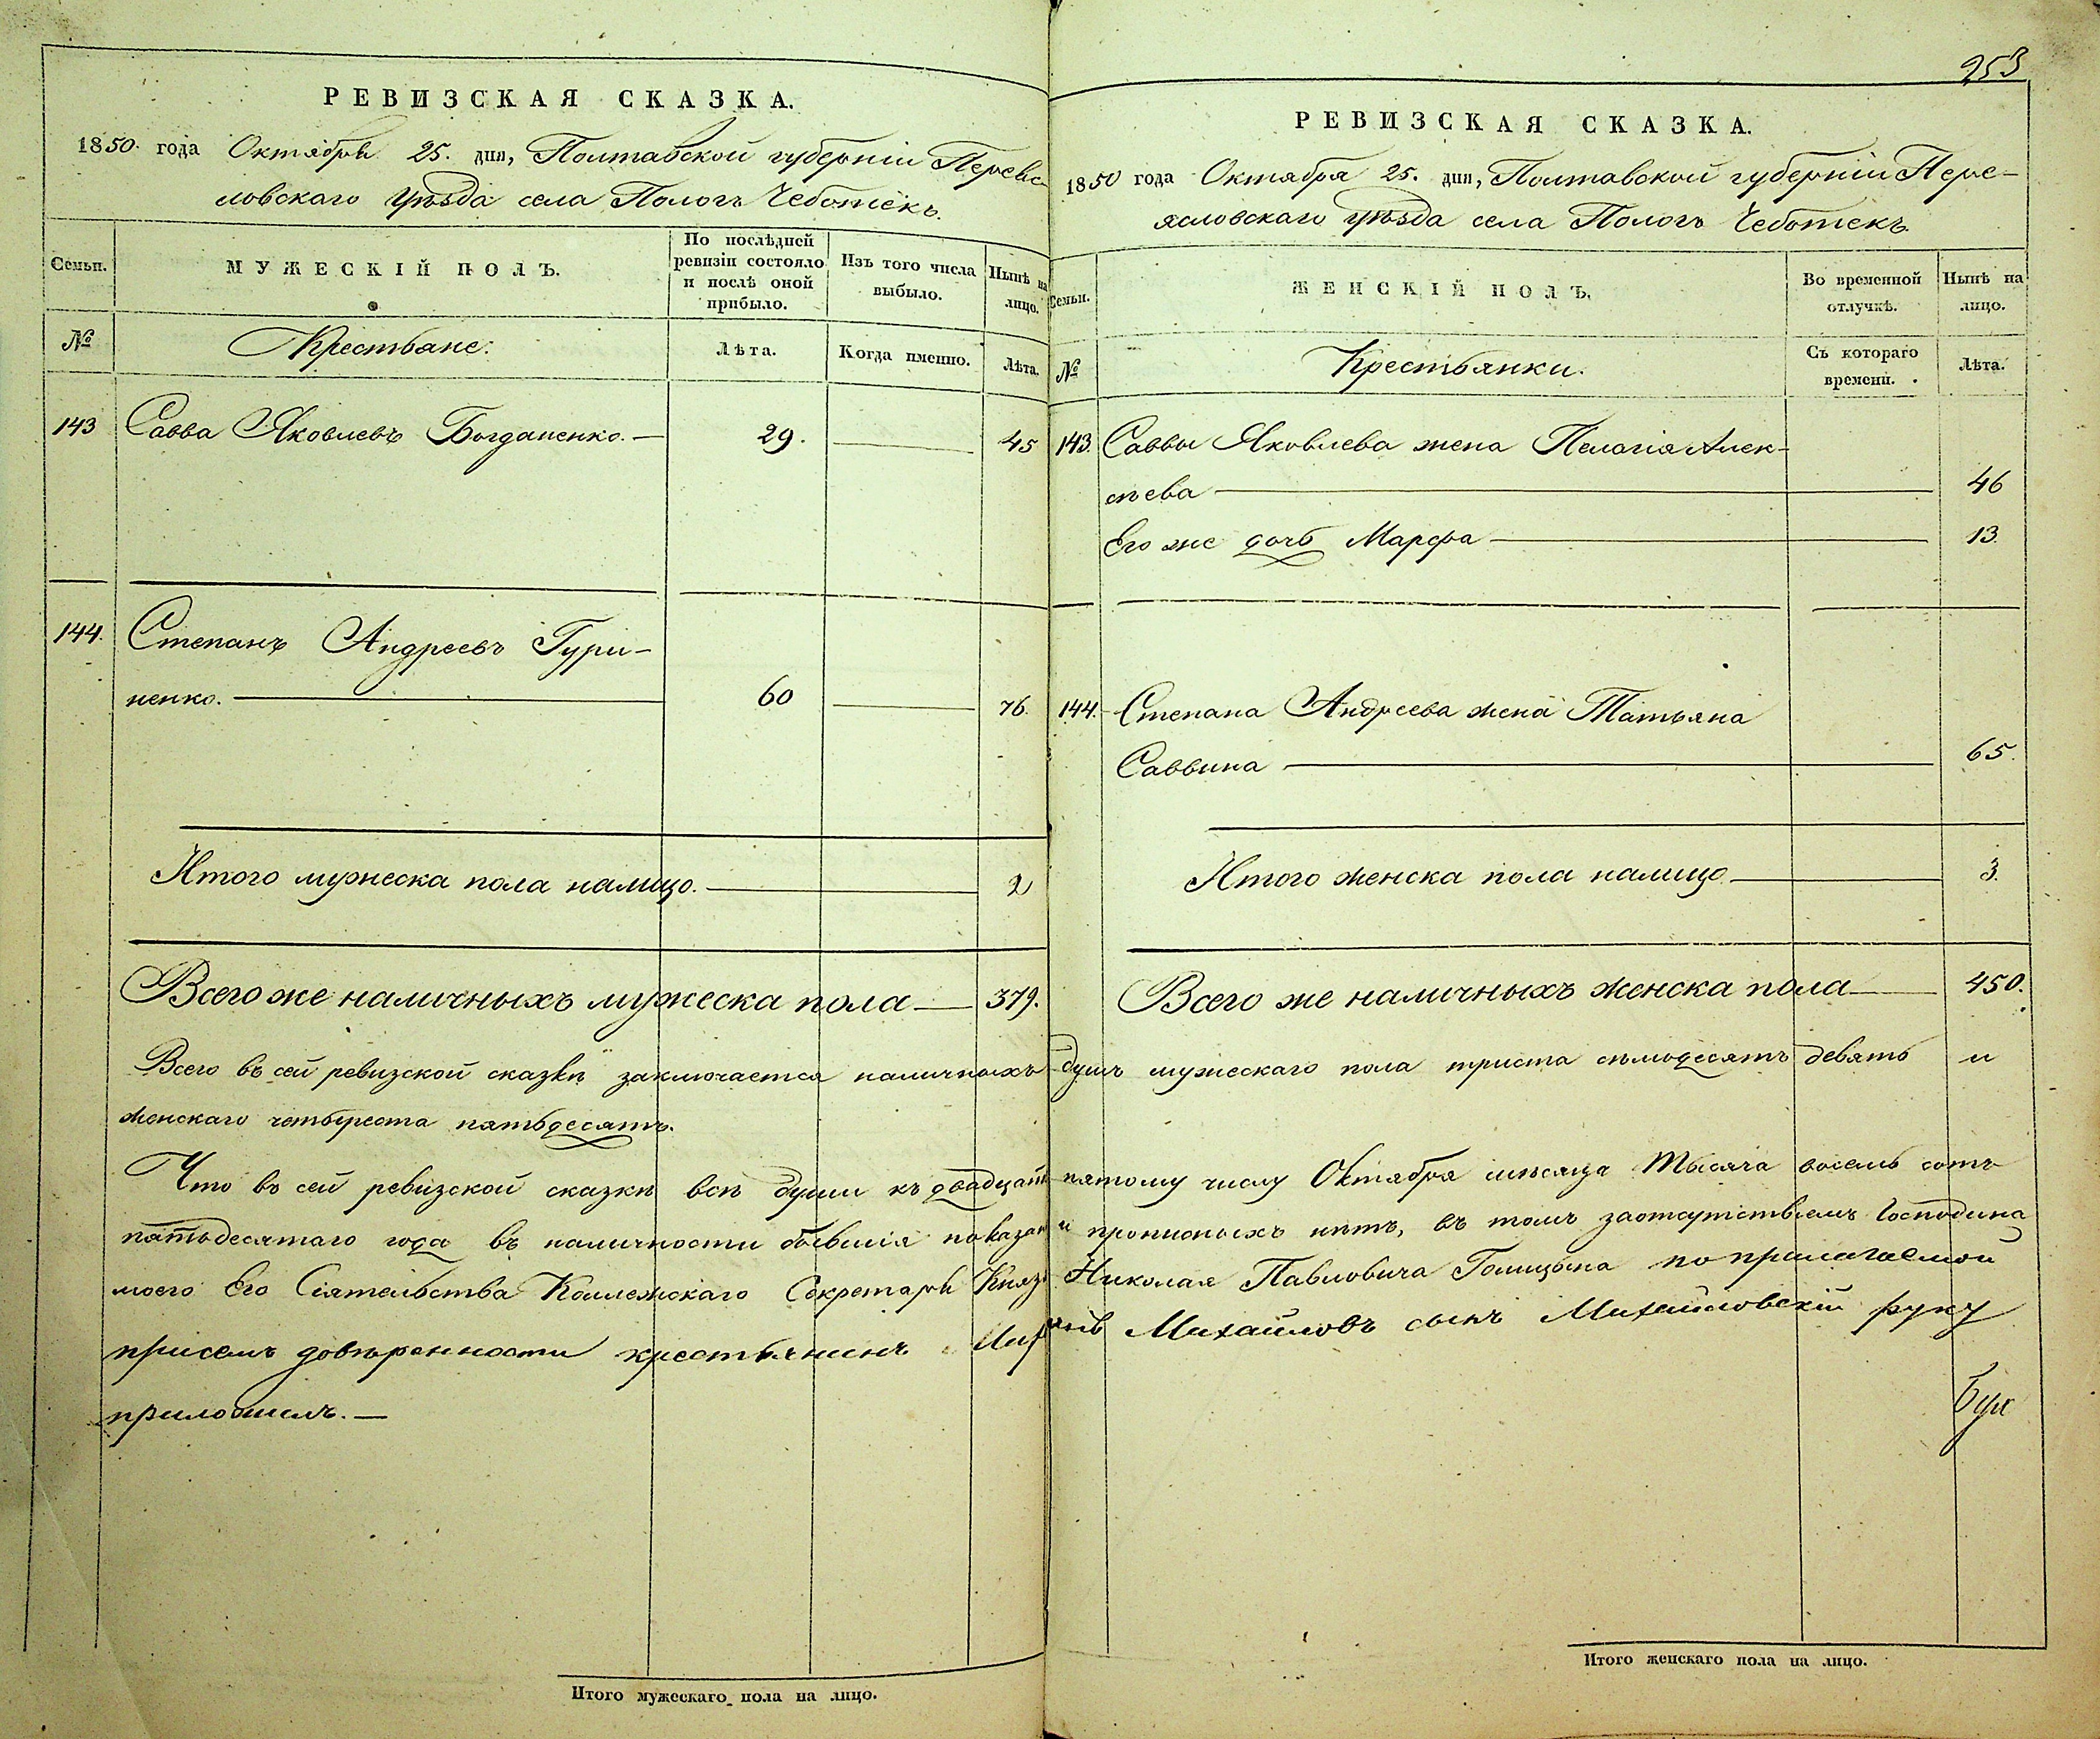 РЕВИЗСКАЯ СКАЗКА.
1850. года Октября 25. дня, Полтавской губерніи Переяс-
ловскаго уѣзда села Пологъ Чеботекъ.
Семьи.
МУЖЕСКІЙ ПОЛЪ.
По послѣдней ревизіи состояло и послѣ оной прибыло.
Изъ того числа выбыло.
Нынѣ на лицо.
№
Крестьяне.
Лѣта.
Когда именно.
Лѣта.
143 Савва Яковлевъ Богданенко. — 29. — 45
144. Степанъ Андреевъ Гури-
ненко. — 60 — 76.
Итого мужеска пола налицо. — 2
Всего же наличныхъ мужеска пола — 379.
253
РЕВИЗСКАЯ СКАЗКА.
1850 года Октября 25. дня, Полтавской губерніи Пере-
ясловскаго уѣзда села Пологъ Чеботекъ.
Семьи.
ЖЕНСКІЙ ПОЛЪ.
Во временной отлучкѣ.
Нынѣ на лицо.
№
Крестьянки.
Съ котораго времени.
Лѣта.
143. Саввы Яковлева жена Пелагія Алек-
сѣева — 46
Его же дочь Марфа — 13.
144. Степана Андреева жена Татьяна
Саввина — 65.
Итого женска пола налицо — 3.
Всего же наличныхъ женска пола — 450.
Всего въ сей ревизской сказкѣ заключается наличныхъ душъ мужескаго пола триста сѣмдесятъ девять и
женскаго четыреста пятьдесятъ.
Что въ сей ревизской сказкѣ всѣ души къ двадцать пятому числу Октября мѣсяца тысяча восемь сотъ
пятьдесятаго года въ наличности бывшія показаны и прописныхъ нѣтъ, въ томъ заотсутствіемъ Господина
моего Его Сіятельства Коллежскаго Секретаря Князя Николая Павловича Голицына по прилагаемой
присемъ довѣренности крестьянинъ Михайловъ сынъ Михайловскій руку
приложилъ. —
Итого мужескаго пола на лицо.
Итого женскаго пола на лицо.